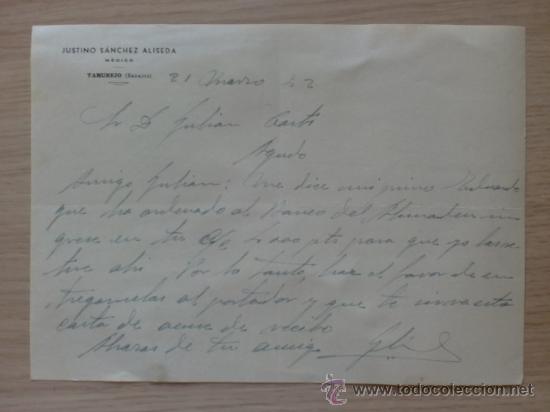 JUSTINO SÁNCHEZ ALISEDA
MÉDICO
TAMUREJO (Badajoz)
21 Marzo 42
Sr D Julian
Agudo
Amigo Julian: Me dice mi primo Eduardo
que ha ordenado al Banco del Almaden in
grese en tu c/c 4.000 pts para que yo las re
tire ahi. Por lo tanto, haz el favor de en
tregarselas al portador y que te sirva esta
carta de acuse de recibo
Abrazos de tu amigo
todocoleccion
www.todocoleccion.net